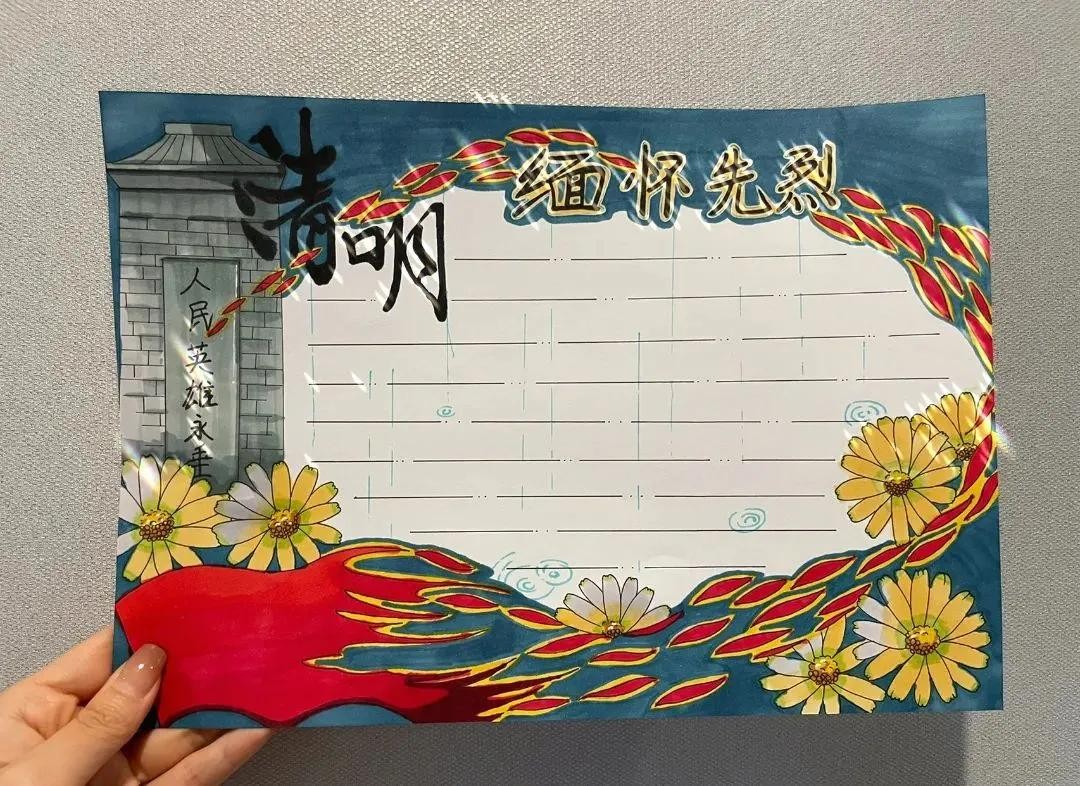 清明
缅怀先烈
人民英雄永垂